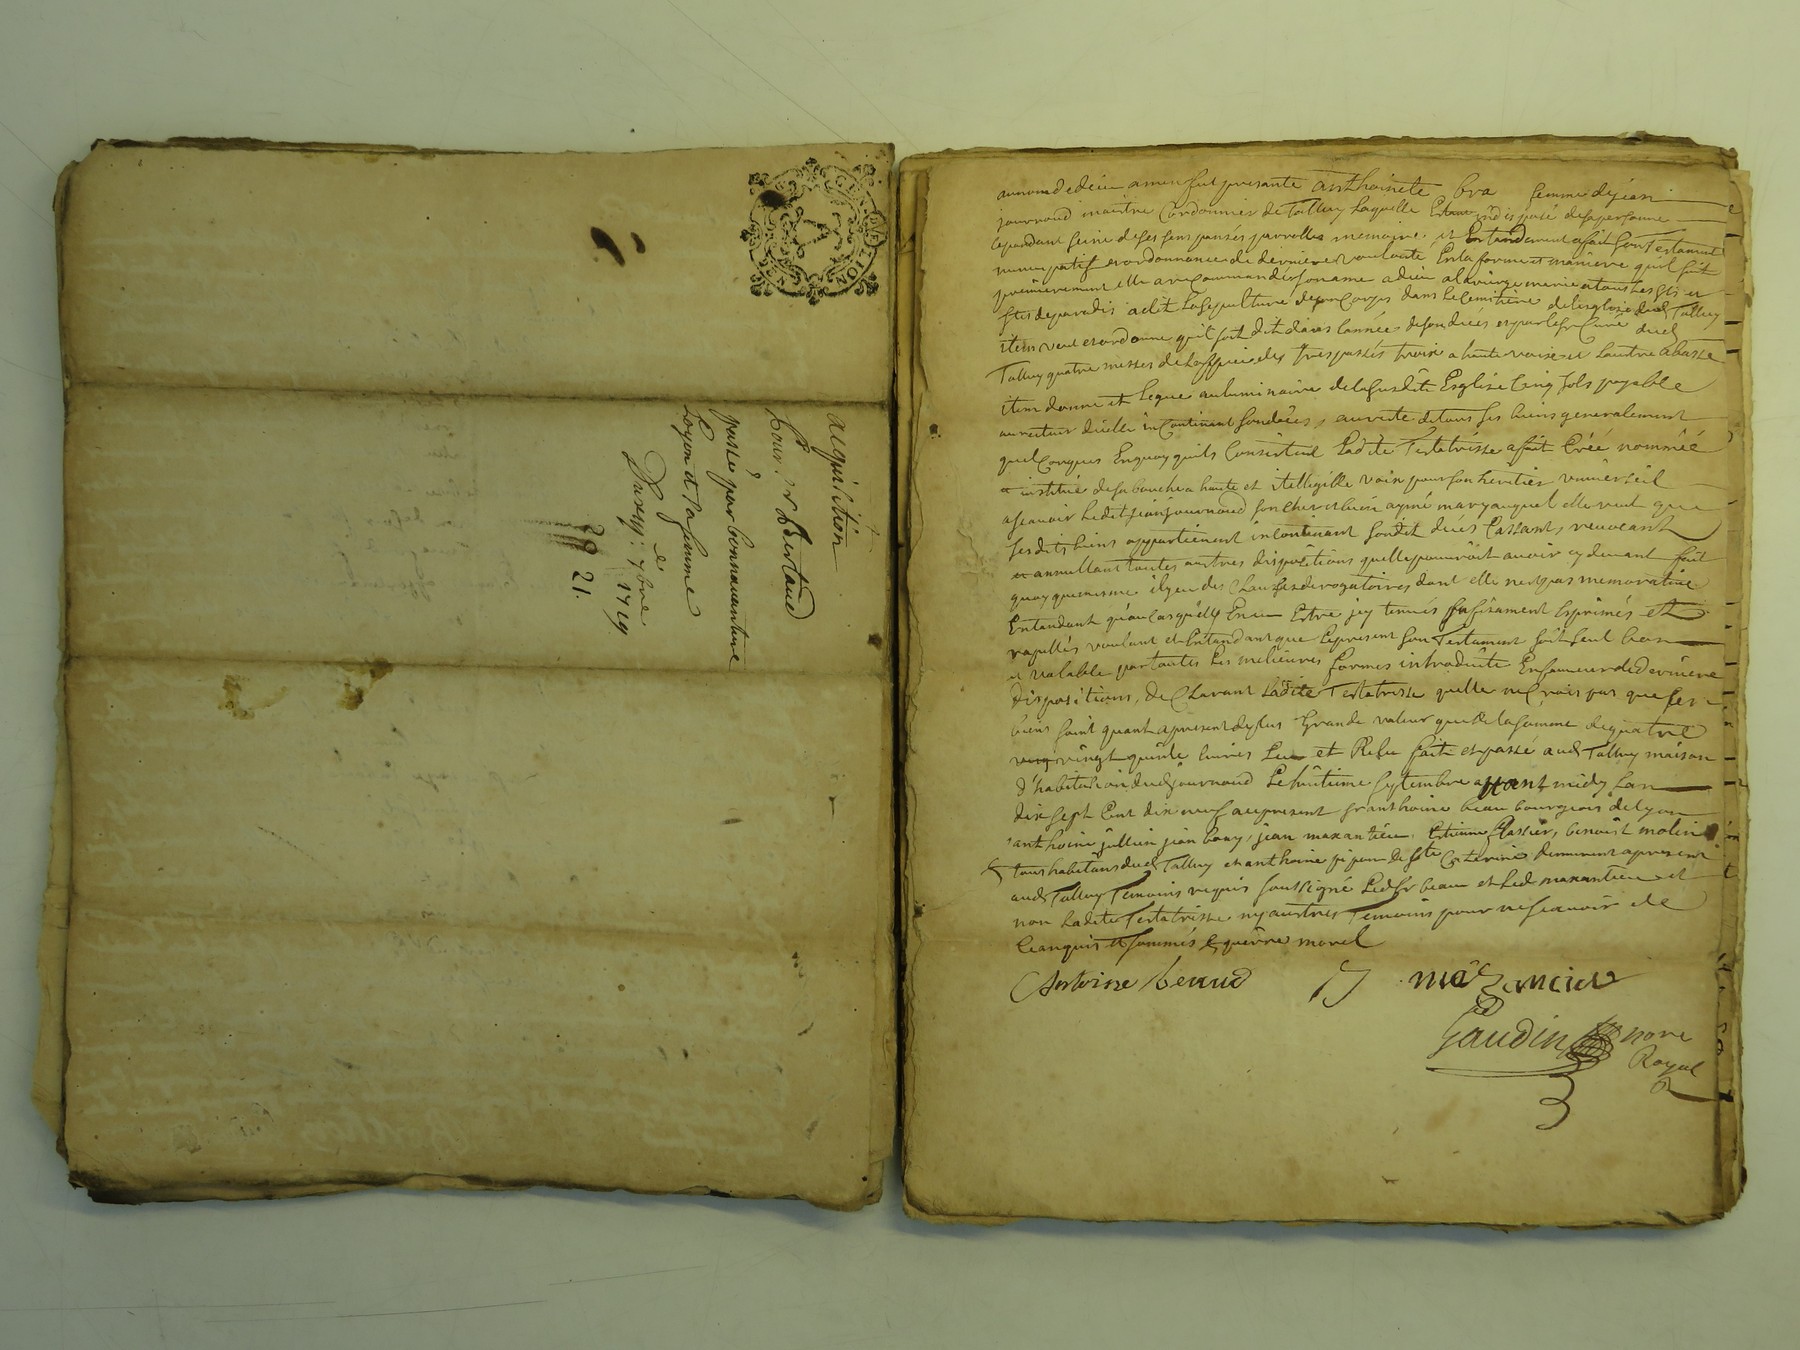 GEN DE LION
acquisition
pour sr Bertaud
passé par bonnaventure
Loyon et sa femme
Du 27e 7bre 1719
21.
au nom de dieu amen fut presante anthoinete bra femme de jean
journoud maitre Cordonnier de Talluy Laquelle Estant indisposé de sa personne
cependant seine de ses sens pansées parrolles memoire et Entandement a fait son Testament
nuncupatif et ordonnance de derniere voulonté En la forme et maniere quil suit
premierement elle a recommandé son ame a dieu a la vierge marie a tous les sts et
stes de paradis a elit la sepulture de son Corps dans le Cemitiere de l'esglise dud Talluy
item veut et ordonne quil soit dit dans l'année de son decés et par le sr Curé dud
Talluy quatre messes de l'office des trespassés trois a haute voix et l'autre a basse
item donne et legue au luminaire de la susdite Esglise Cinq sols payable
au recteur d'icelle incontinant son decés, au reste de tous ses biens generalement
quelconques En quoy quils Consistent Ladite Testatrisse a fait Créé nommée
et institué de sa bouche a haute et itelligible voix pour son heritier universeil
ascavoir Ledit jean journoud son cher et bien aymé mary auquel elle veut que
sesdits biens appartienent incontenant sondit decés Cassant, revocant
et annullant toutes autres dispositions quelle pouroit avoir cy devant fait
quoy que mesme il y eu des Clauses derogatoires dont elle nest pas memorative
Entandant quau cas quelle En eu Estre icy tenués sufisament Exprimés et
rapellés voulant et Entandant que le present son Testament soit seul bon
et valable par toutes les melieures formes introduite En faveur de derniere
dispositions, declarant Ladite Testatrisse quelle ne Crois pas que ses
biens soint quant a present de plus Grande valeur que de la somme de quatre
vingt quinse livres Leu et Releu fait et passé aud Talluy maison
d'habitation dud journoud Le huitieme septembre avant midy L'an
dix sept Cent dix neuf au present sr anthoine beau bourgeois de lyon
anthoine jullien jean bony, jean mazantieu, Estienne Flassier, benoist molin
tous habitans dud Talluy et anthoine pipon de ste Caterine demeurant a present
aud Talluy Temoins requis soussigné Led sr beau et Led mazantieu et
non Ladite Testatrisse ny autres Temoins pour ne scavoir de
Ce anquis et sommés
Antoine beaud J mazancieu
Gaudin nore
Royal